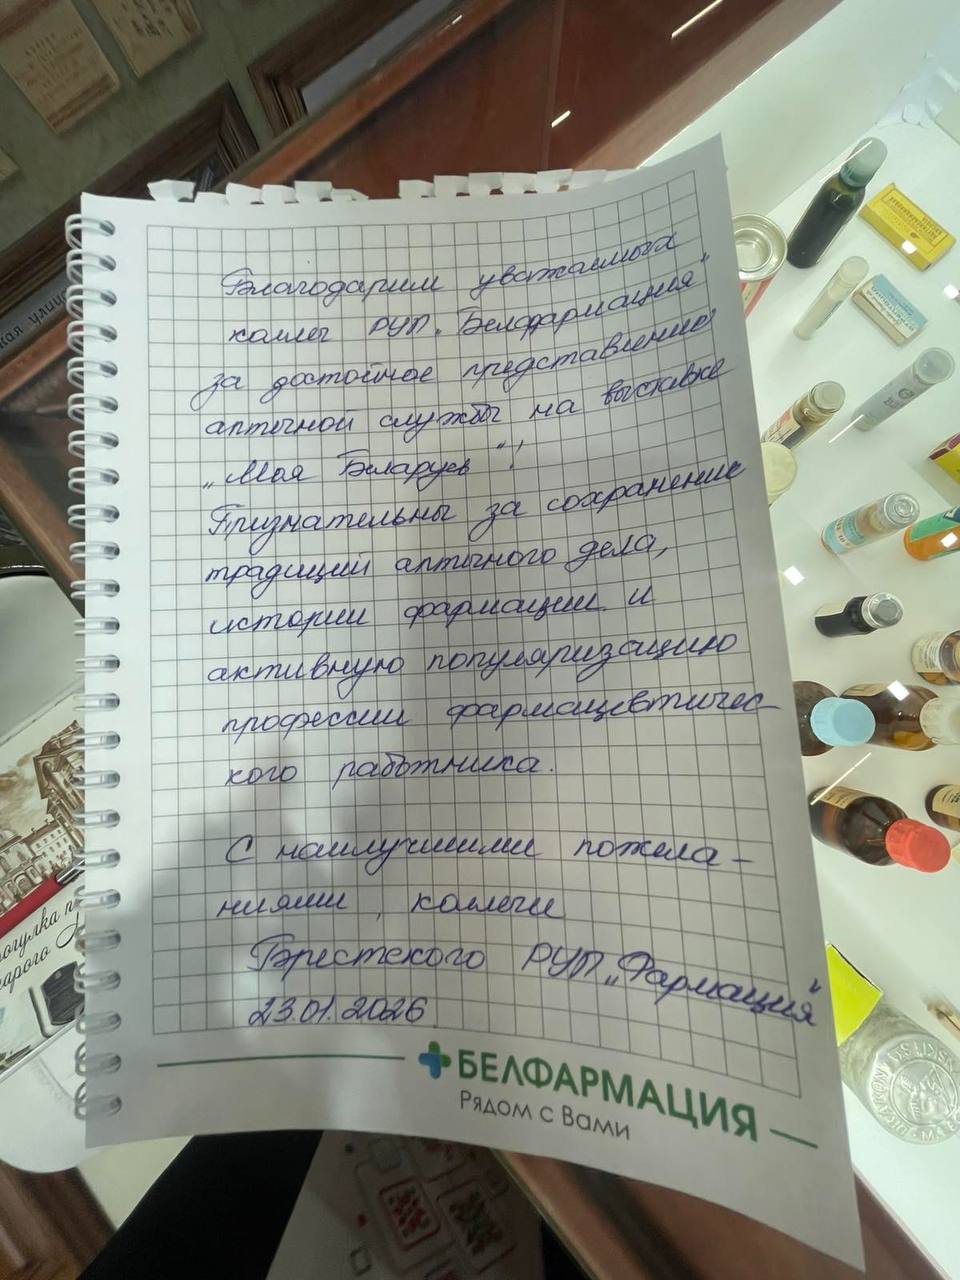 Благодарим уважаемых
коллег РУП „Белфармация"
за достойное представление
аптечной службы на выставке
„Моя Беларусь"!
Признательны за сохранение
традиций аптечного дела,
истории фармации и
активную популяризацию
профессии фармацевтичес-
кого работника.
С наилучшими пожела-
ниями, коллеги
Брестского РУП „Фармация"
23.01.2026
БЕЛФАРМАЦИЯ
Рядом с Вами